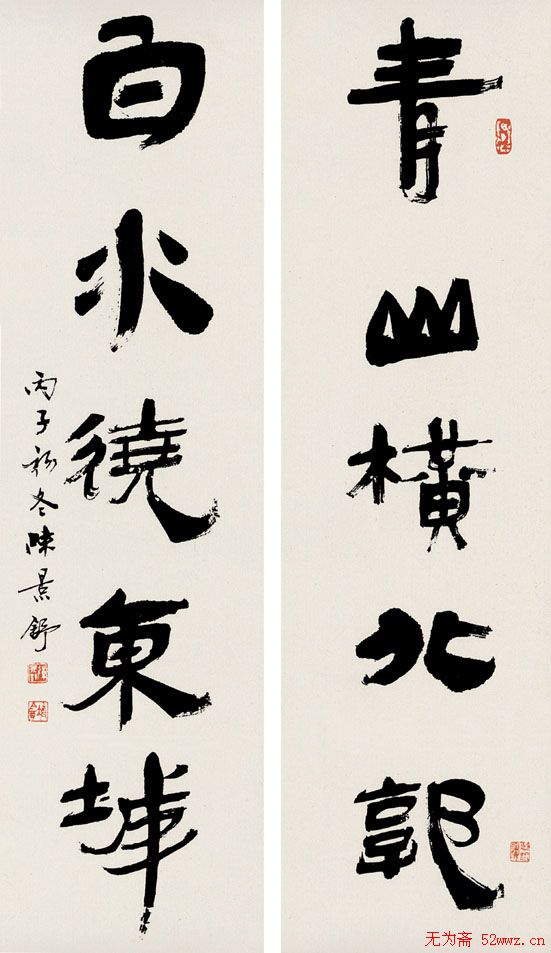 青山橫北郭
白水徺東城
丙子初冬陳景舒
无为斋 52wwz.cn